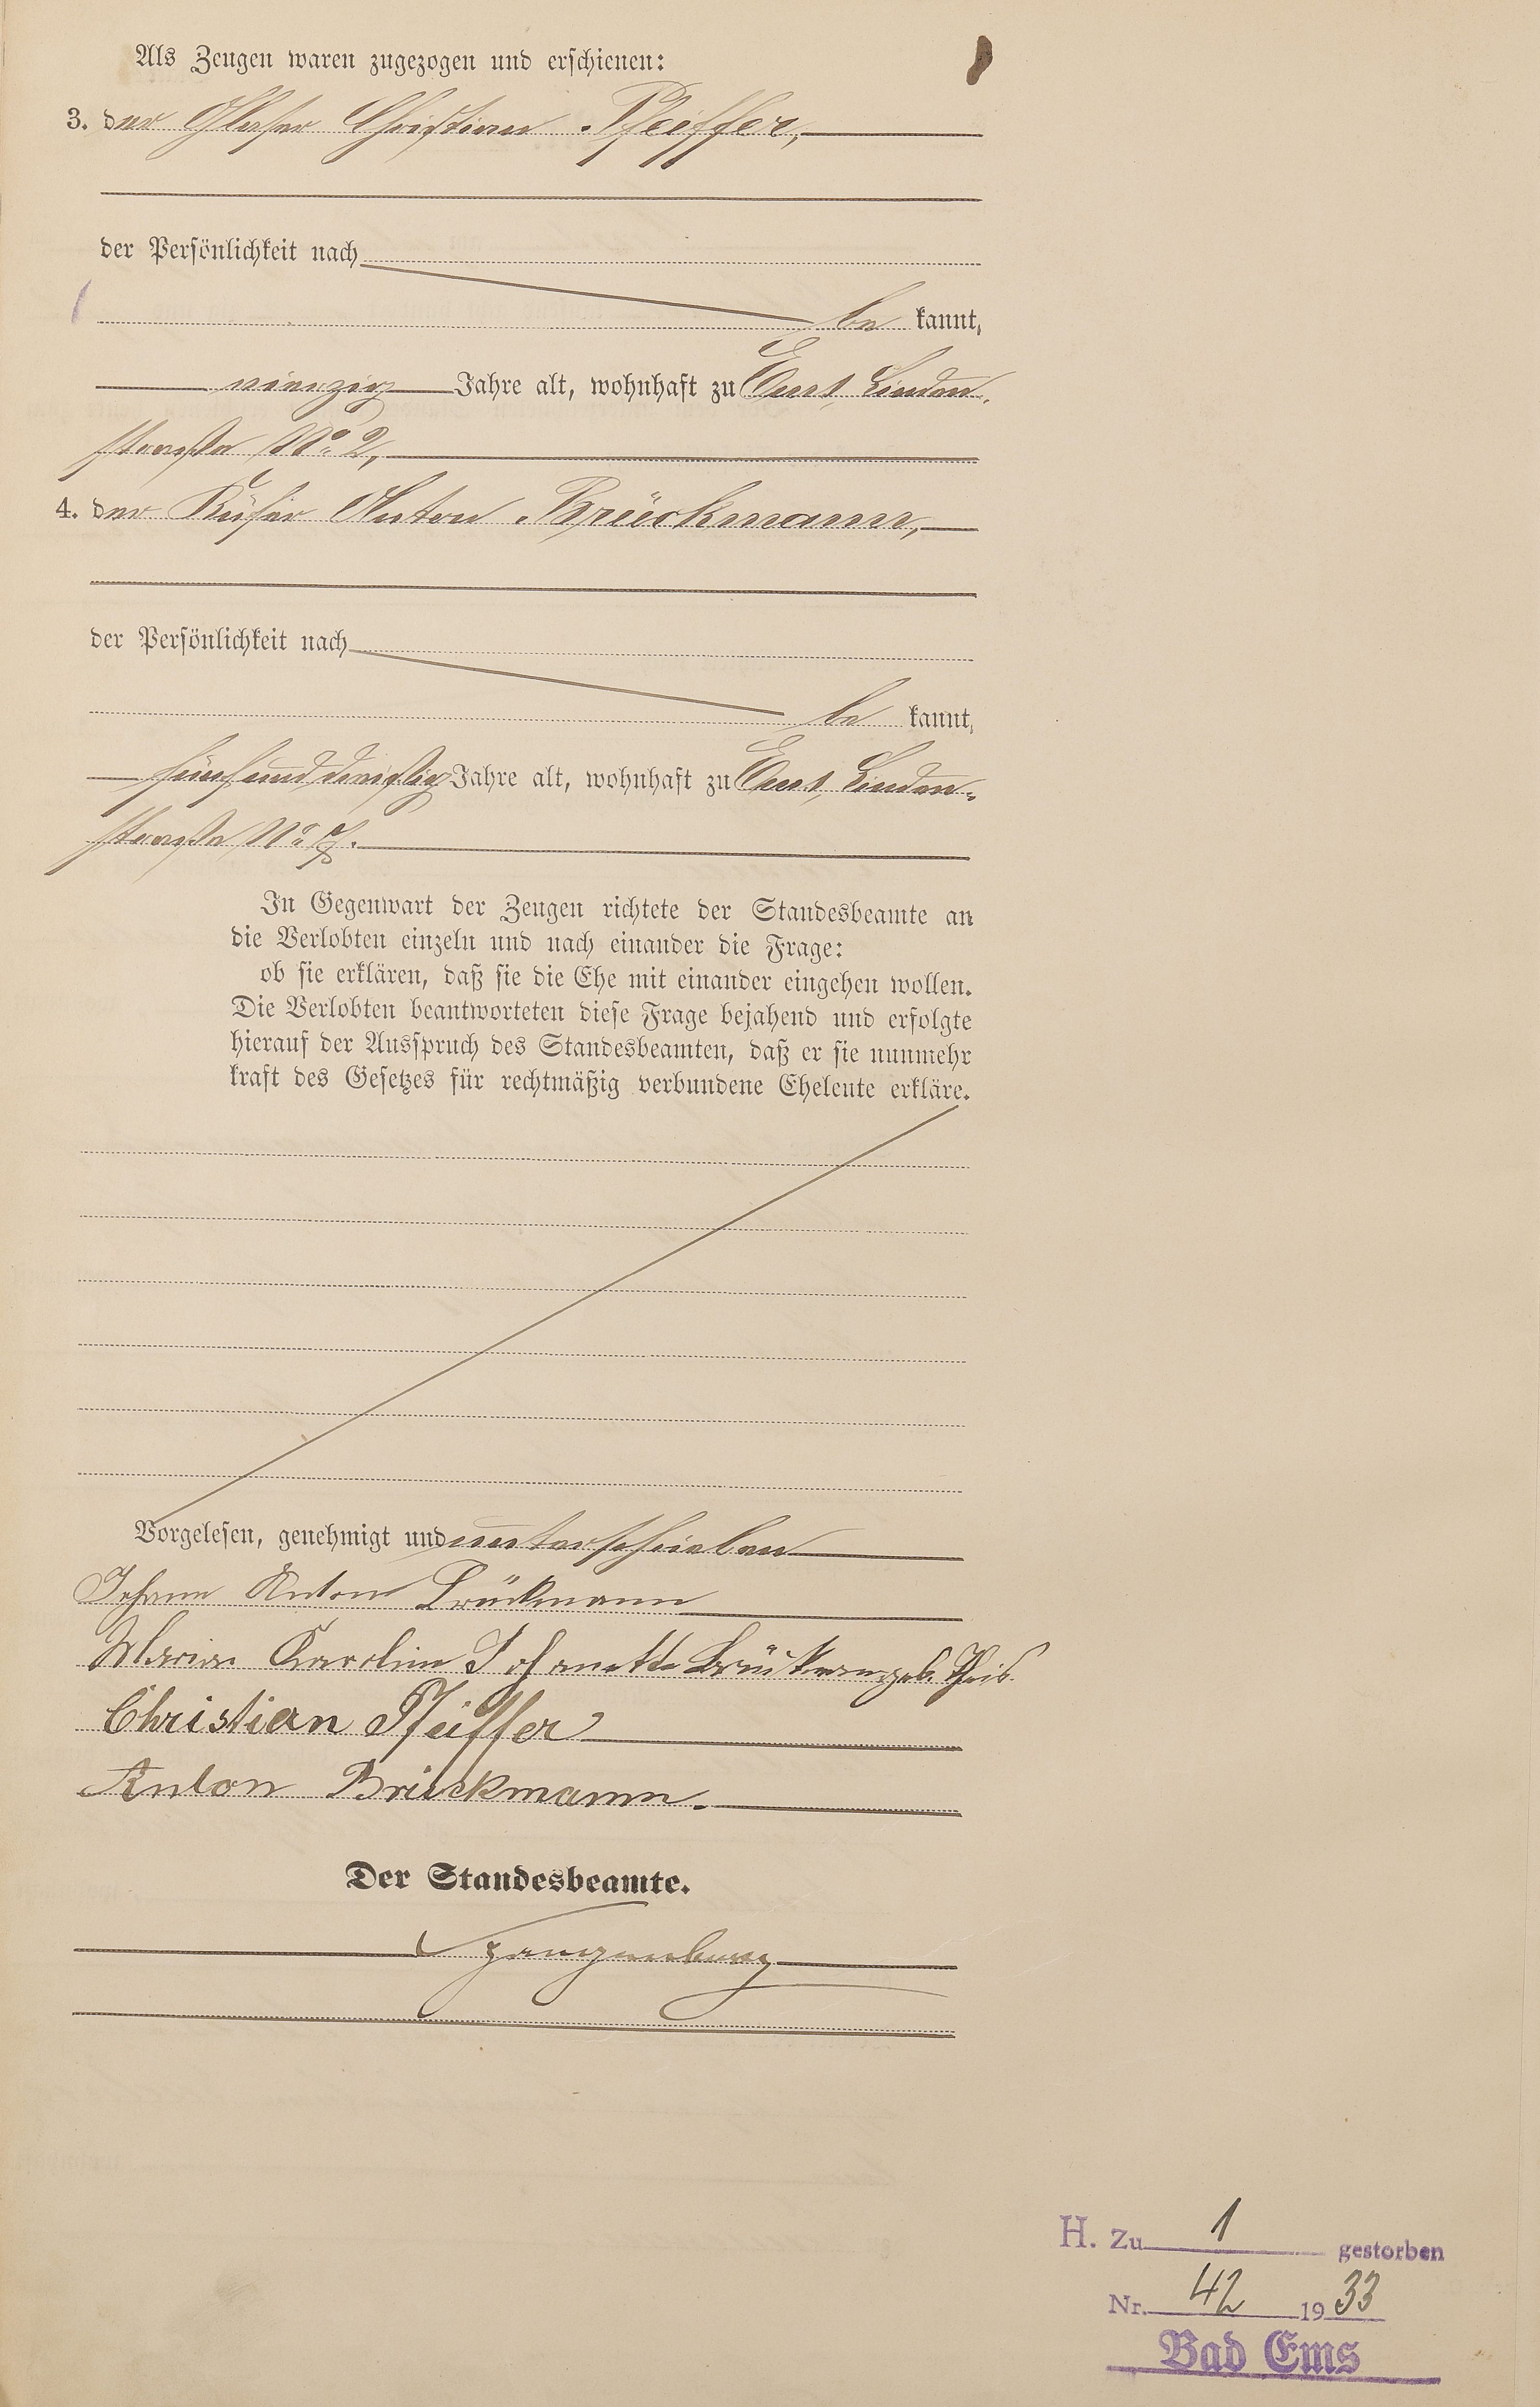 Als Zeugen waren zugezogen und erschienen:
3. der Glaser Christian Pfeiffer,
der Persönlichkeit nach
be kannt,
vierzig Jahre alt, wohnhaft zu Ems, Linden-
straße No 2,
4. der Küfer Anton Brückmann,
der Persönlichkeit nach
be kannt,
fünfunddreißig Jahre alt, wohnhaft zu Ems, Linden-
straße No 7.
In Gegenwart der Zeugen richtete der Standesbeamte an
die Verlobten einzeln und nach einander die Frage:
ob sie erklären, daß sie die Ehe mit einander eingehen wollen.
Die Verlobten beantworteten diese Frage bejahend und erfolgte
hierauf der Ausspruch des Standesbeamten, daß er sie nunmehr
kraft des Gesetzes für rechtmäßig verbundene Eheleute erkläre.
Vorgelesen, genehmigt und unterschrieben
Johann Anton Brückmann
Maria Karolina Johanette Brückmann geb. Theis.
Christian Pfeiffer
Anton Brückmann.
Der Standesbeamte.
Spangenberg
H. Zu 1 gestorben
Nr. 42 1933
Bad Ems